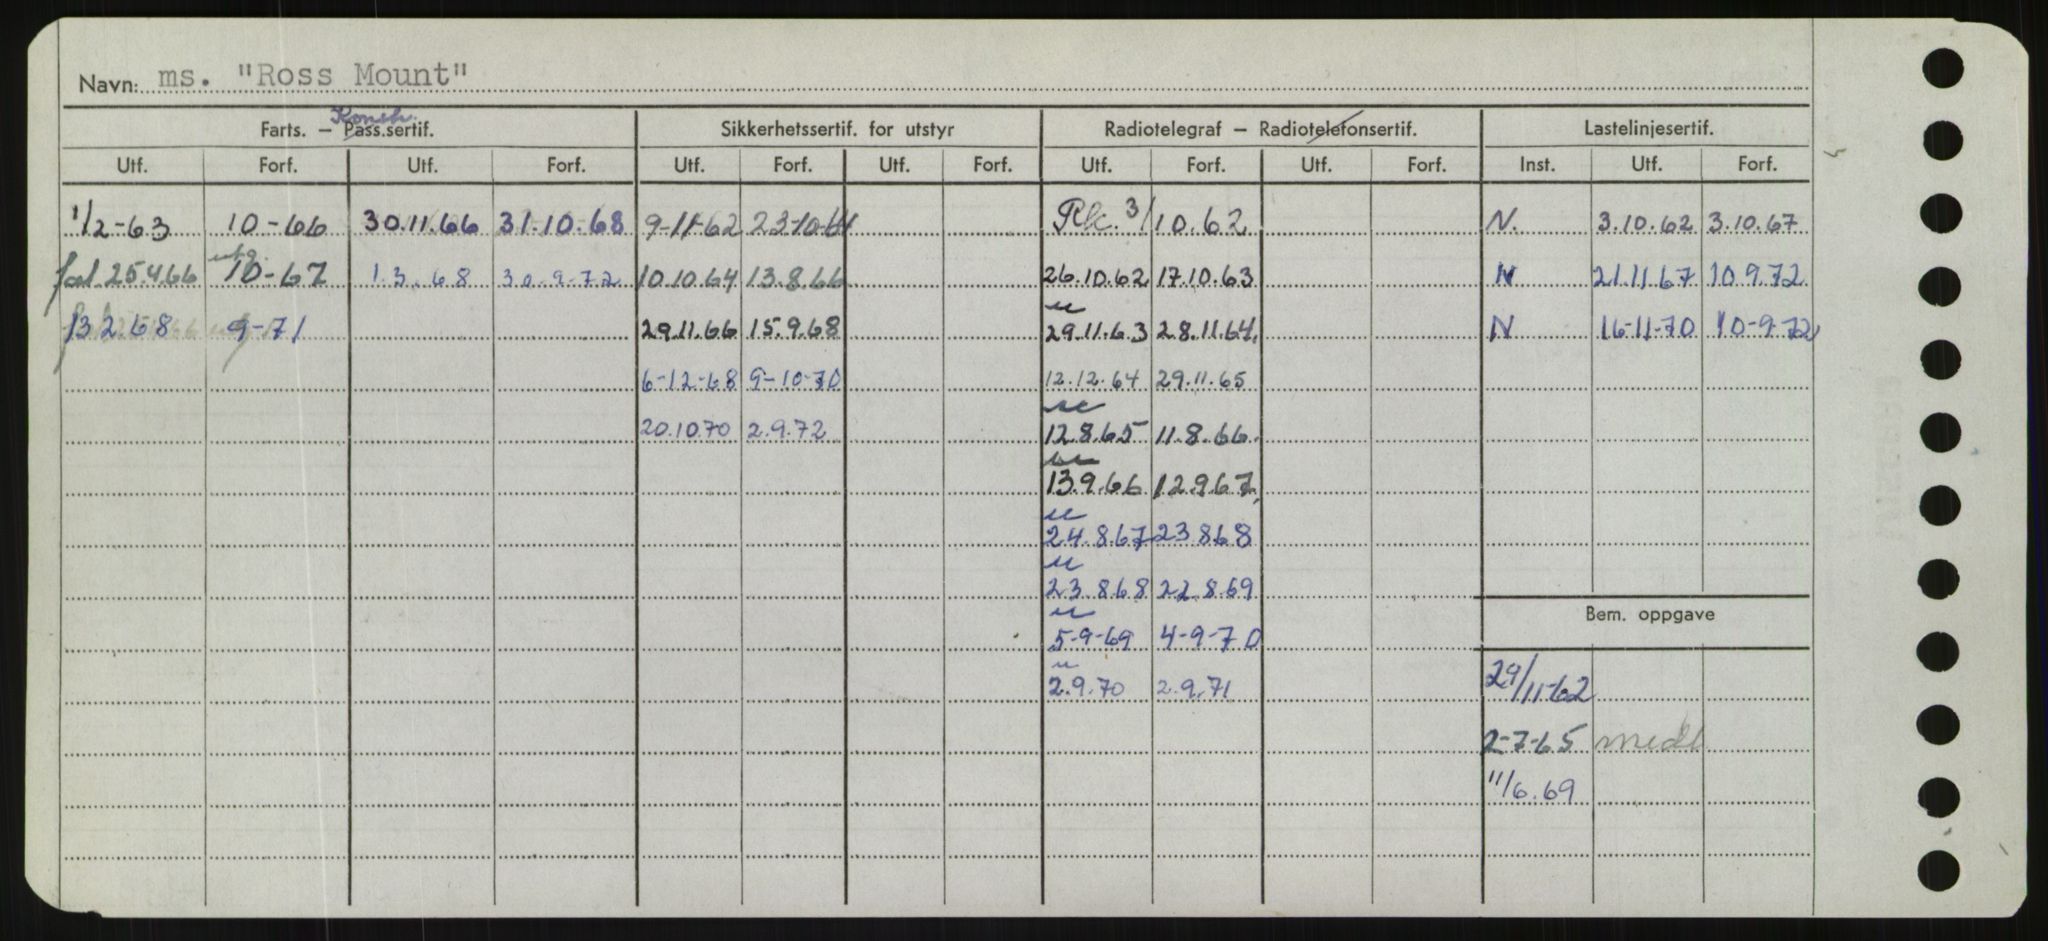 Navn: ms. "Ross Mount"
Konstr.
Farts. – Pass.sertif. Sikkerhetssertif. for utstyr Radiotelegraf – Radiotelefonsertif. Lastelinjesertif.
Utf. Forf. Utf. Forf. Utf. Forf. Utf. Forf. Utf. Forf. Utf. Forf. Inst. Utf. Forf.
1/2-63 10-66 30.11.66 31.10.68 9-11-62 23-10-64 Rk. 3/10.62 N. 3.10.62 3.10.67
utg.
25.4.66 10-67 1.3.68 30.9.72 10.10.64 13.8.66 26.10.62 17.10.63 N 21.11.67 10.9.72
13.2.68 9-71 29.11.66 15.9.68 29.11.63 28.11.64. N 16-11-70 10-9-72
6-12-68 9-10-70 12.12.64 29.11.65
20.10.70 2.9.72 12.8.65 11.8.66.
13.9.66 12.9.67.
24.8.67 23.8.68
23.8.68 22.8.69
Bem. oppgave
5-9-69 4-9-70
2.9.70 2.9.71 29/11-62
2-7-65 medl
11/6.69